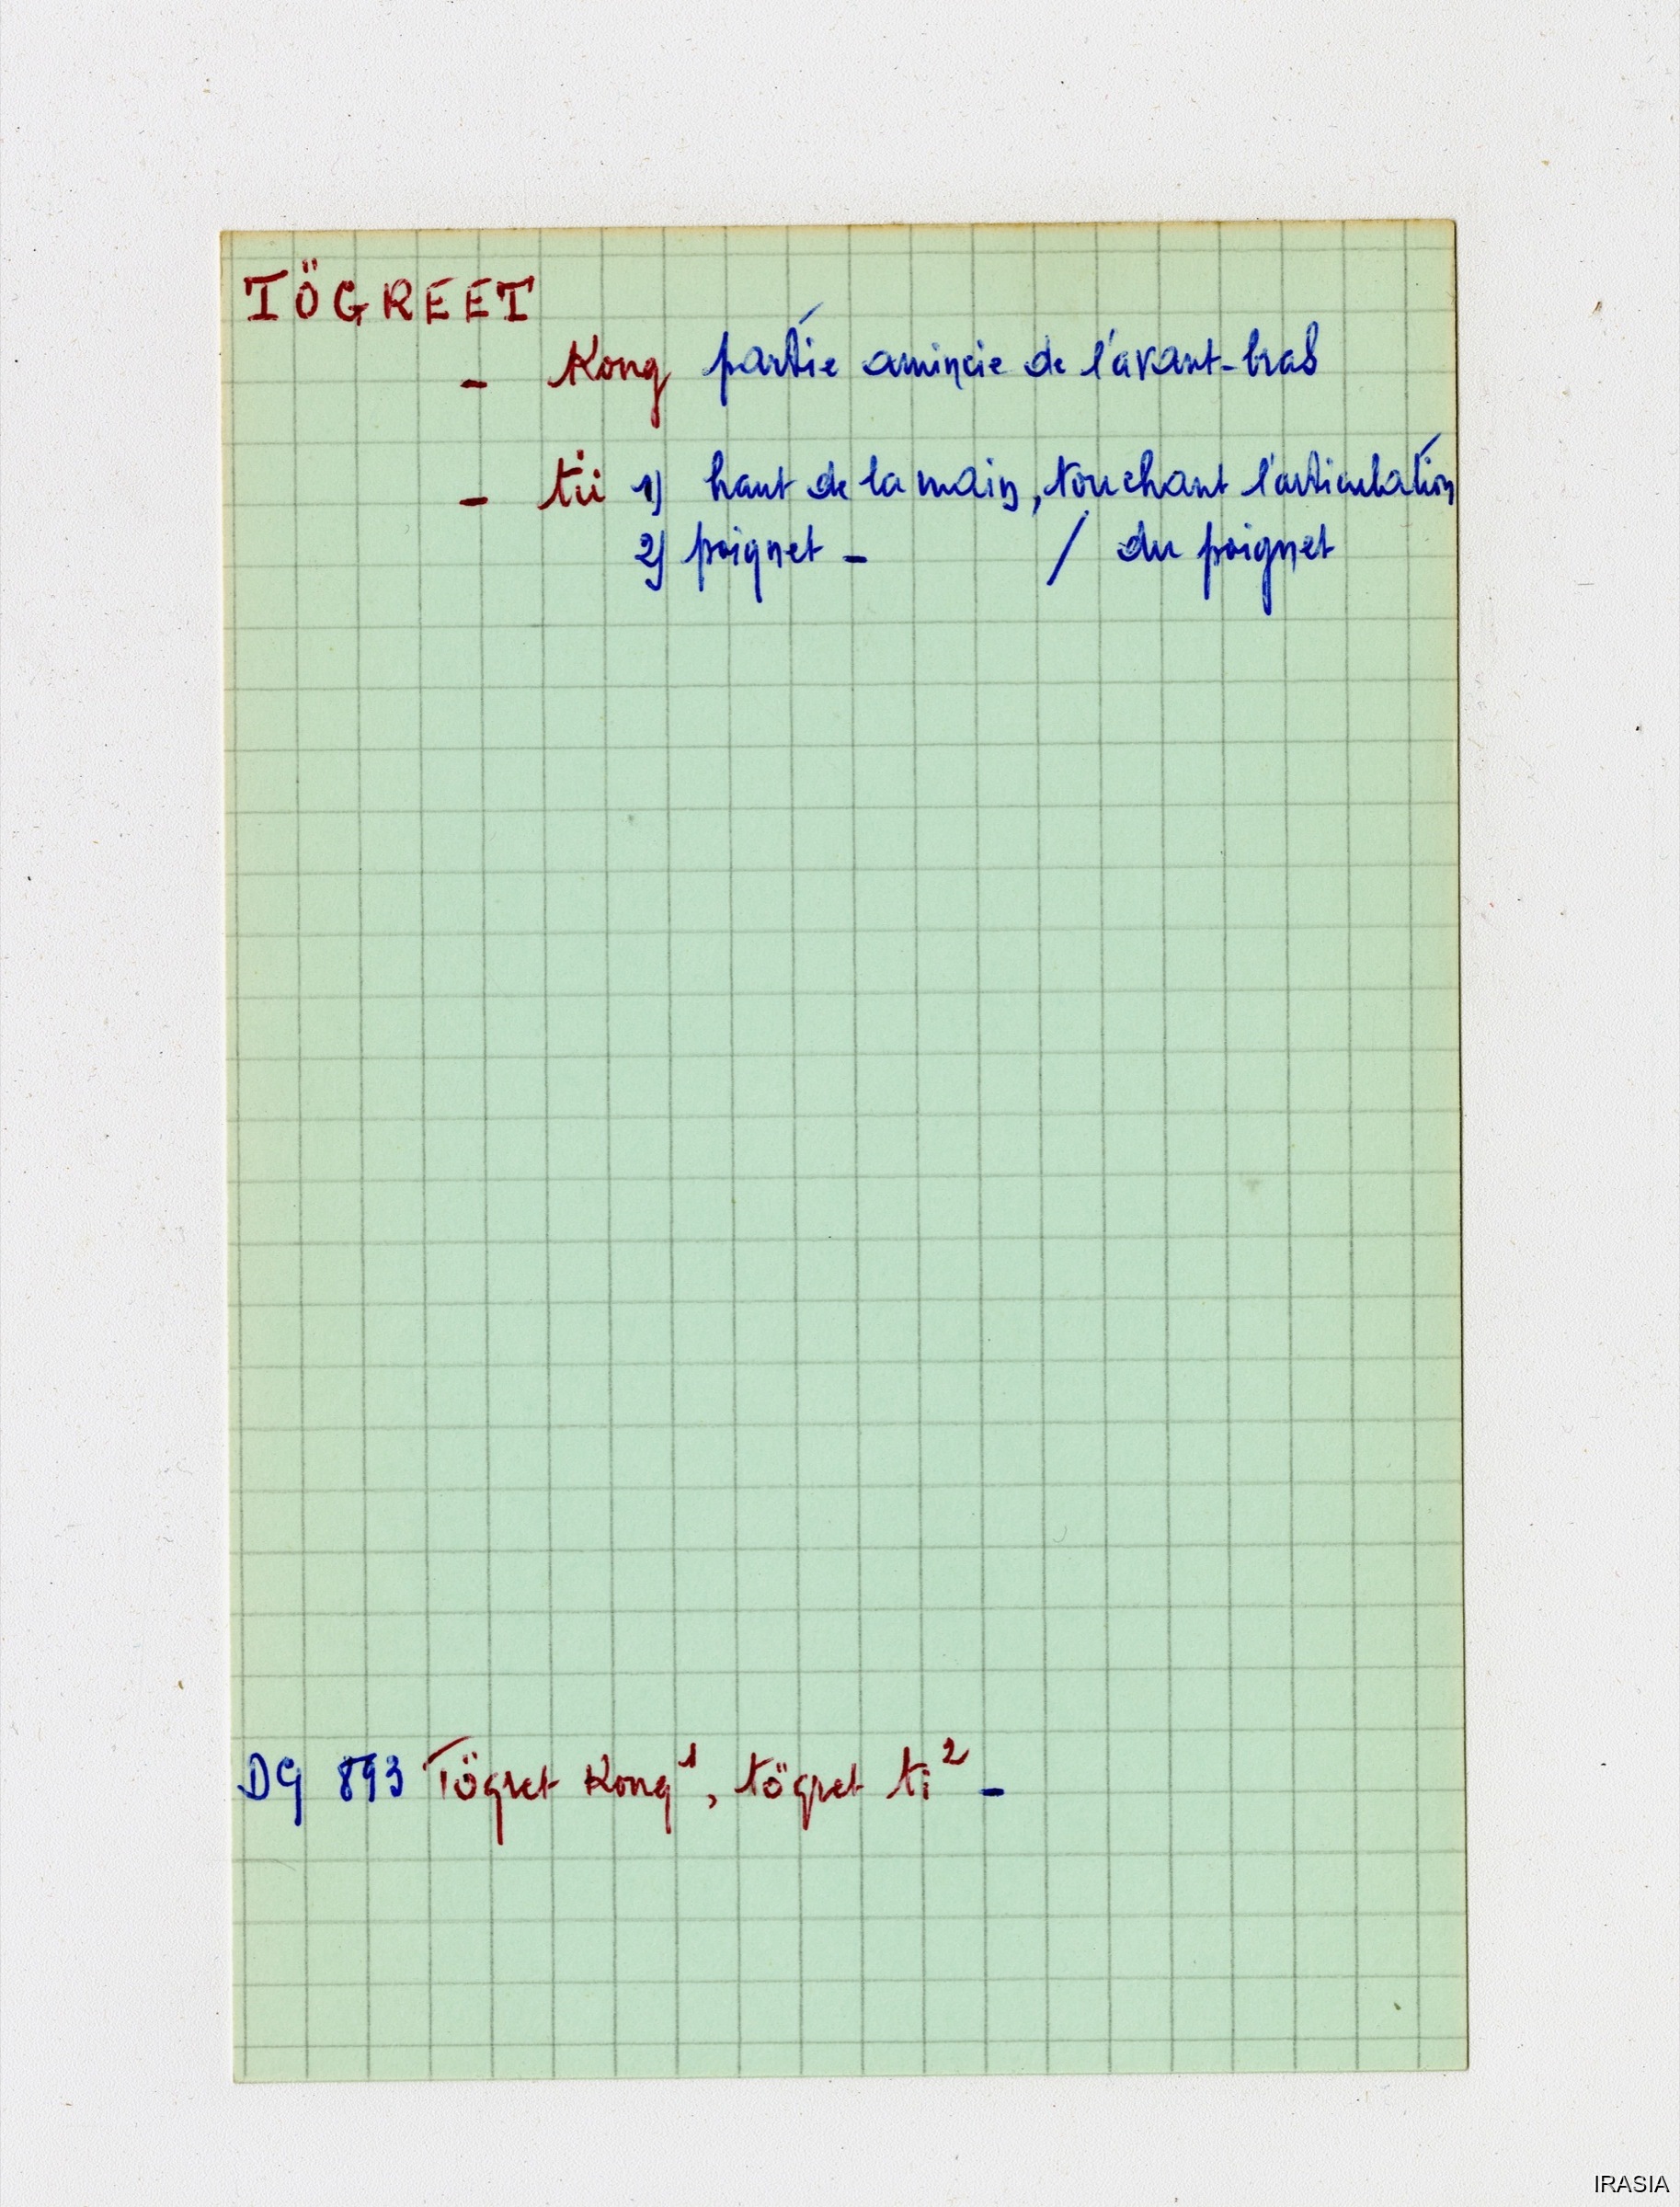 TÖGREET
- Kong partie amincie de l'avant-bras
- tii 1) haut de la main, touchant l'articulation
2) poignet - / du poignet
DG 893 Tögret Kong¹, tögret ti² -
IRASIA